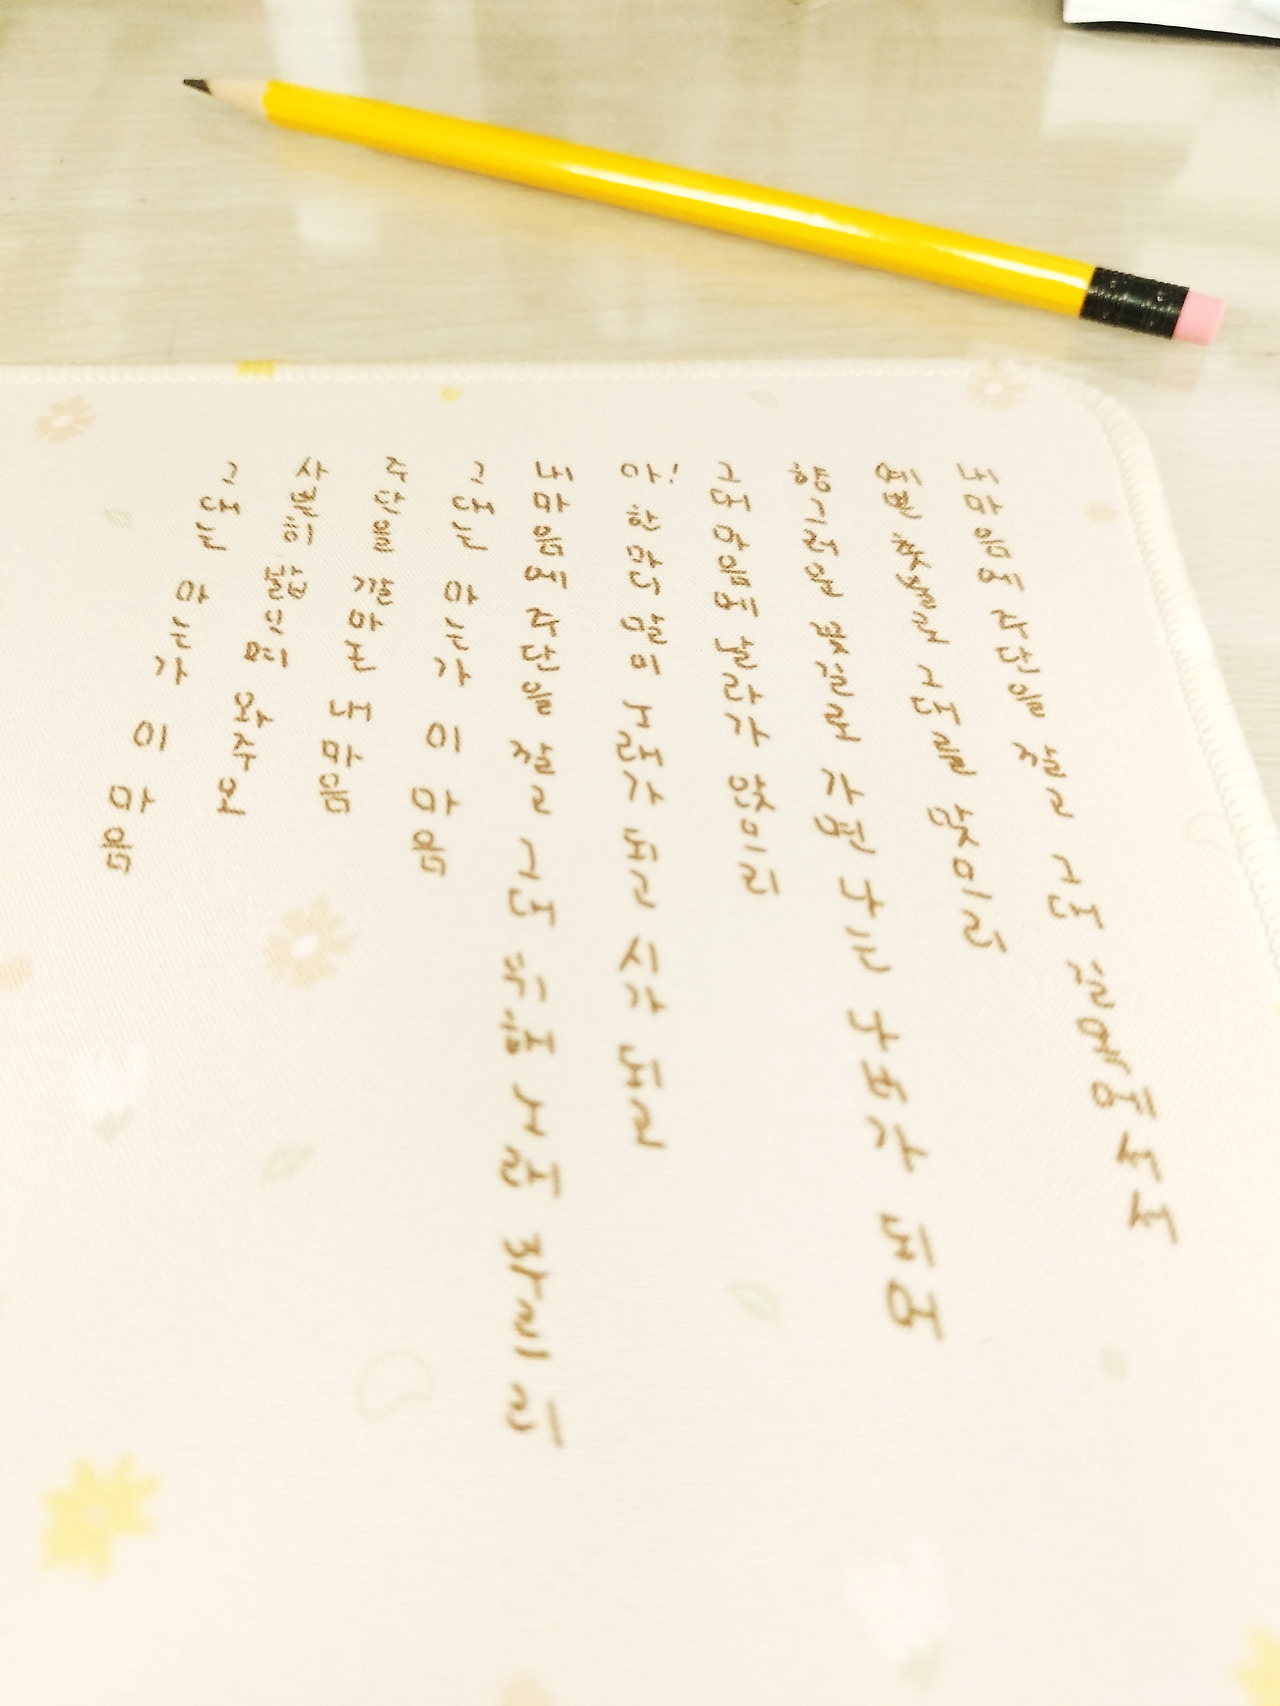 내마음에 주단을 깔고 그대 길목에 서서
예쁜 촛불로 그대를 맞으리
향기로운 꽃길로 가면 나는 나비가 되어
그대 마음에 날라가 앉으리
아! 한 마디 말이 노래가 되고 시가 되고
내마음에 주단을 깔고 그대 위해 노래 부르리
그대는 아는가 이 마음
주단을 깔아논 내 마음
사뿐히 밟으며 와주오
그대는 아는가 이 마음